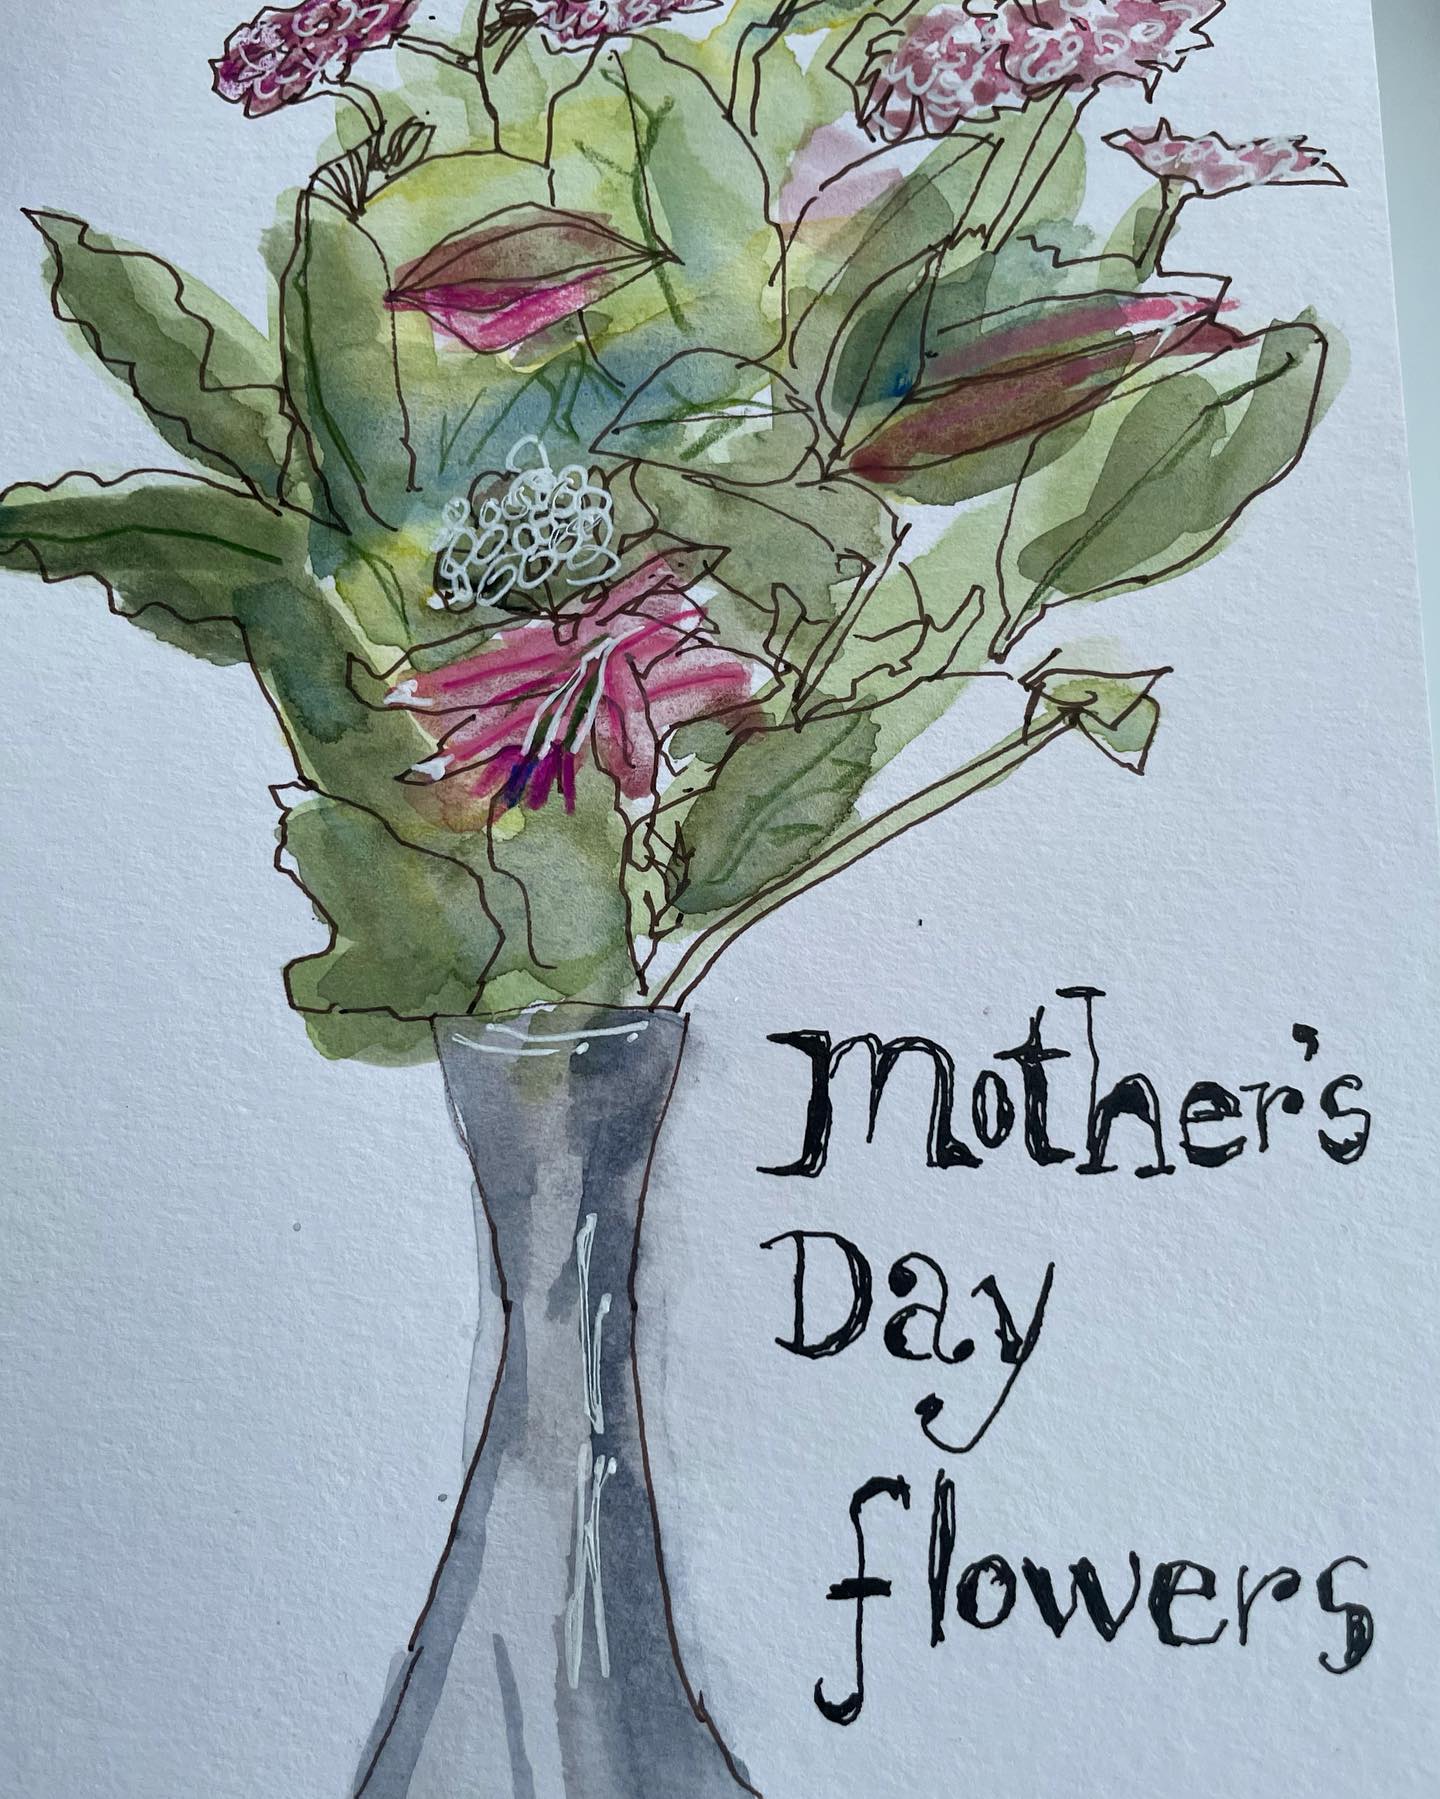 Mother's
Day
flowers